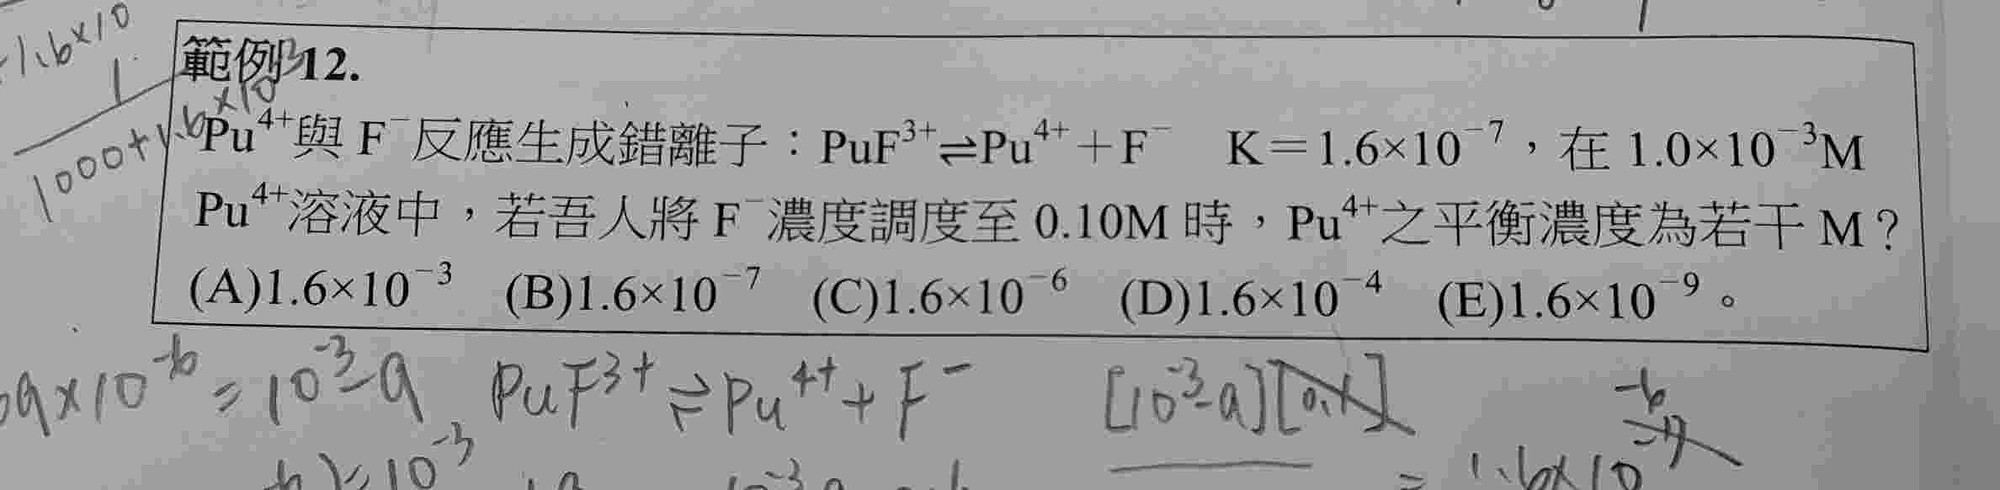 -1.6×10
1
1000+1.6×10³
範例12.
Pu⁴⁺與 F⁻反應生成錯離子：PuF³⁺⇌Pu⁴⁺＋F⁻　K＝1.6×10⁻⁷，在 1.0×10⁻³M
Pu⁴⁺溶液中，若吾人將 F⁻濃度調度至 0.10M 時，Pu⁴⁺之平衡濃度為若干 M？
(A)1.6×10⁻³　(B)1.6×10⁻⁷　(C)1.6×10⁻⁶　(D)1.6×10⁻⁴　(E)1.6×10⁻⁹。
a×10⁻⁶ = 10⁻³-a　PuF³⁺⇌Pu⁴⁺+F⁻　[10⁻³-a][0.1]　-6
10⁻³　= 1.6×10